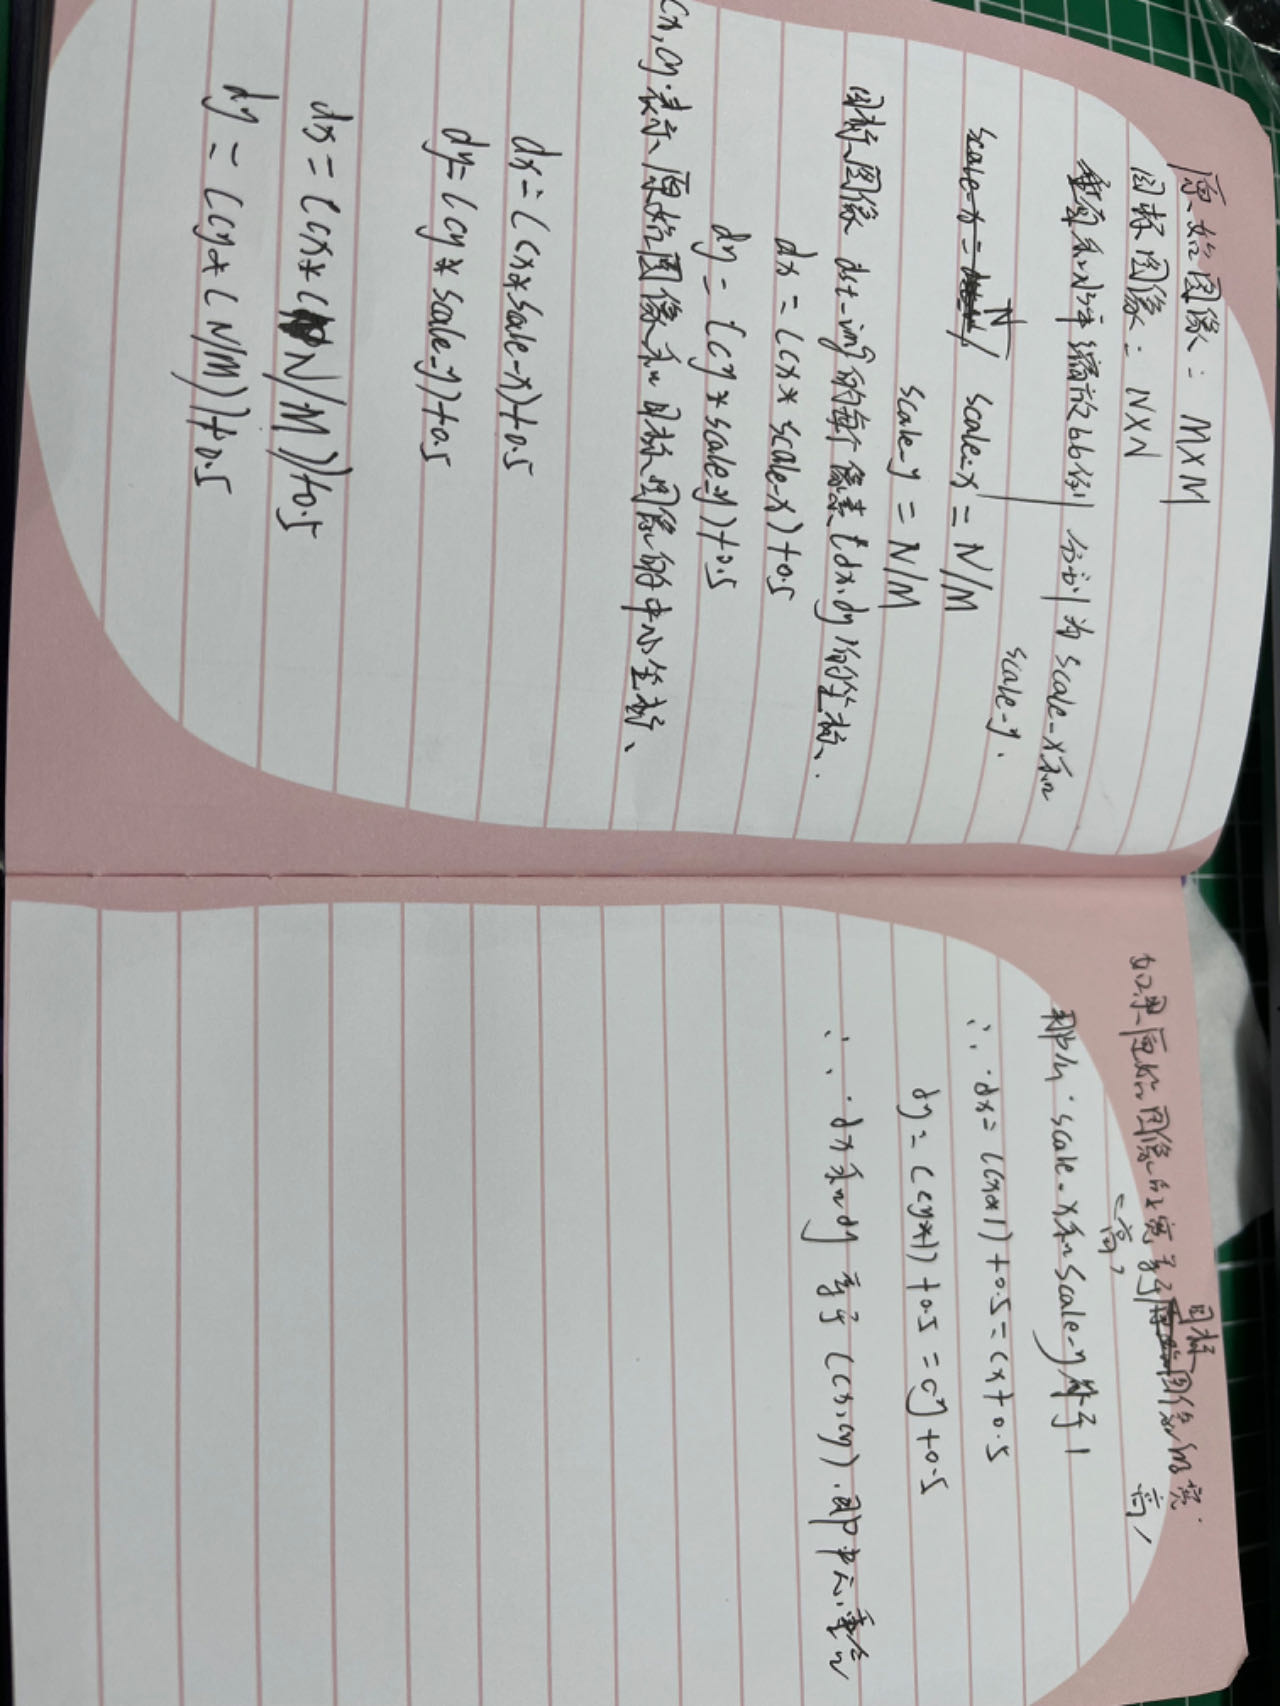 原始图像: M×M
目标图像: N×N
垂直和水平缩放比例 分别为 scale-x和
scale-y.
N
scale-x = scale-x = N/M
scale-y = N/M
目标图像 dst-img的每个像素(dx,dy)的坐标.
dx = (cx * scale-x)+0.5
dy = (cy * scale-y)+0.5
cx,cy.表示原始图像和目标图像的中心坐标、
dx = (cx*scale-x)+0.5
dy= (cy * scale-y)+0.5
dx = (cx*(N/M))+0.5
dy = (cy*(N/M))+0.5
目标
如果原始图像的宽等于图像的宽.
高, 高,
那么.scale-x和scale-y等于1
∴ dx= (cx*1)+0.5=cx+0.5
dy= (cy*1)+0.5 = cy+0.5
∴ dx和dy 等于 (cx,cy).即中心重合